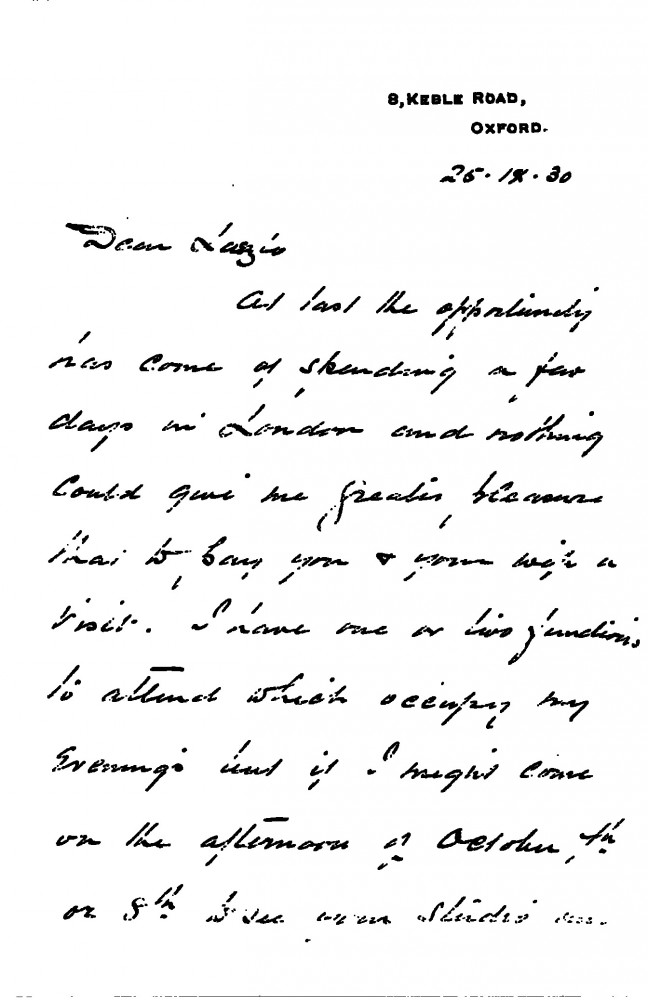 8, KEBLE ROAD,
OXFORD.
25·IX·30
Dear Laszlo
At last the opportunity
has come of spending a few
days in London and nothing
could give me greater pleasure
than to pay you & your wife a
visit. I have one or two functions
to attend which occupy my
evenings but if I might come
on the afternoon of October 7th
or 8th to see your studio